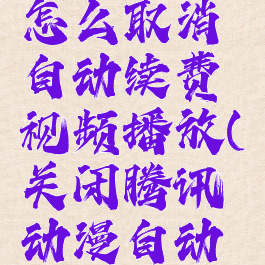 怎么取消
自动续费
视频播放(
关闭腾讯
动漫自动